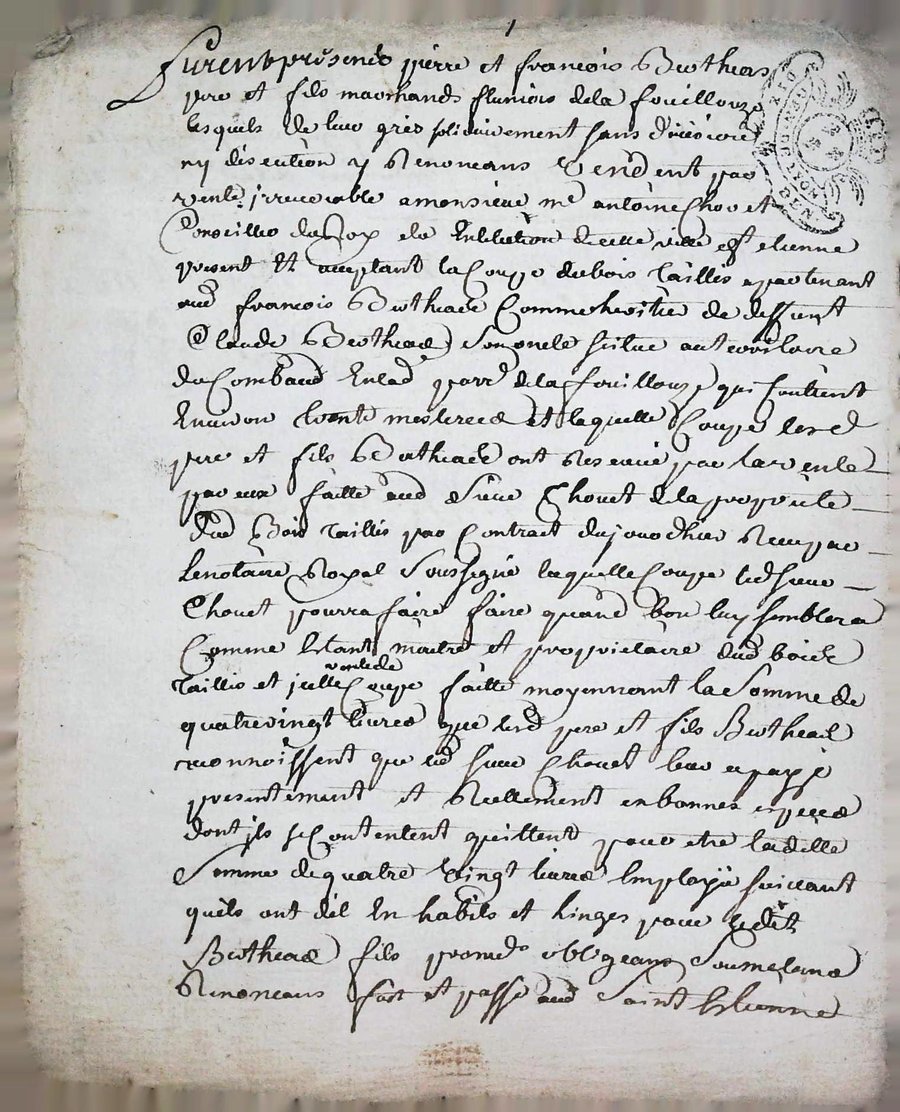 1
Furent présents pierre et françois Bertheas
pere et fils marchands de la fouillouze
lesquels de leur gré solidairement sans division
ny discution y Renonceans Vendent par
vente jrrevocable a monsieur me antoine Chovet
Conseiller du Roy En Election de cette ville st etienne
present Et acceptant la Coupe du bois Taillis apartenant
aud françois Bertheas Comme heritier de deffunt
Claude Bertheas Son oncle scitué au territoire
du Combaud En lad parr de la fouillouze qui Contient
Environ trente mesterees et laquelle Coupe lesd
pere et fils Bertheas ont Reservé par la vente
par eux faitte aud Sieur Chovet de la proprieté
dud Bois Taillis par Contract du jourd'huy Receu par
Le notaire Royal Soussigné laquelle Coupe led sieur
Chovet pourra faire faire quand bon luy semblera
Comme Estant maitre et proprietaire dud bois
vente de
Taillis et jcelle Coupe faitte moyennant la Somme de
quatre vingt livres que lesd pere et fils Bertheas
reconnoissent que led sieur Chovet leur a payé
presentement et Reellement en bonnes especes
dont jls se Contentent quittent pour etre ladtte
Somme de quatre Vingt livres Employé suivant
quils ont dit En habits et linges pour ledit
Bertheas fils promets obligeans Soumettans
Renonceans fait et passé aud Saint Etienne